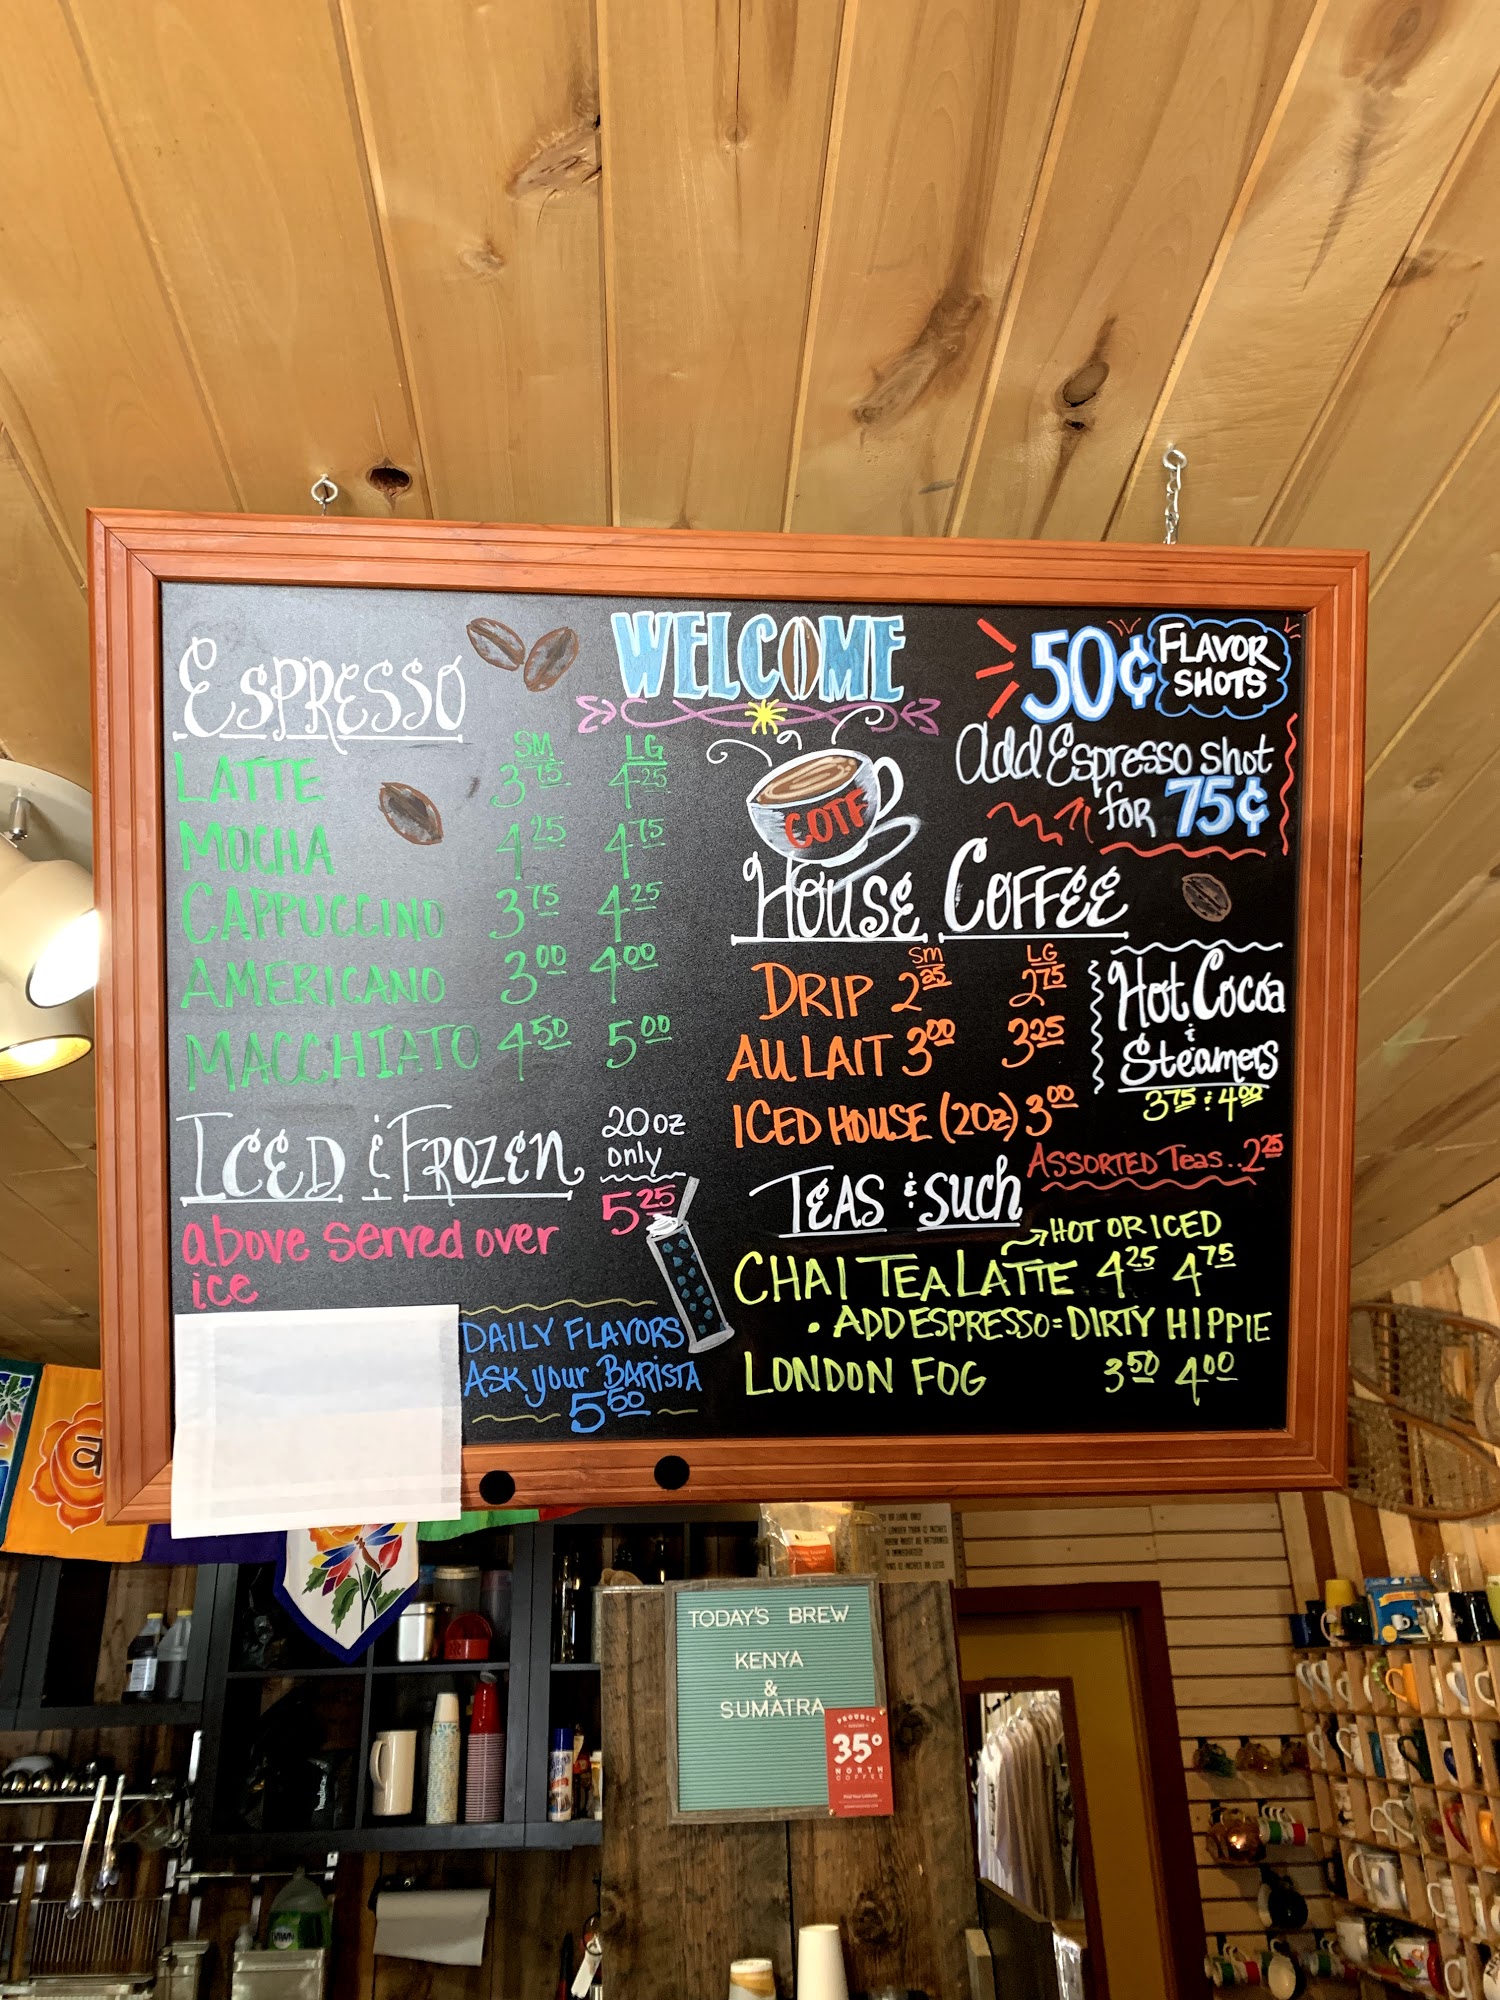 WELCOME
ESPRESSO
SM LG
LATTE 3 75 4 25
MOCHA 4 25 4 75
CAPPUCCINO 3 75 4 25
AMERICANO 3 00 4 00
MACCHIATO 4 50 5 00
ICED & FROZEN 20oz only
above served over ice 5 25
DAILY FLAVORS
ASK your BARISTA
5 50
50¢ FLAVOR SHOTS
Add Espresso shot
for 75¢
COTF
HOUSE COFFEE
SM LG
DRIP 2 25 2 75
AU LAIT 3 00 3 25
ICED HOUSE (20z) 3 00
Hot Cocoa
&
Steamers
3 75 & 4 00
ASSORTED Teas.. 2 25
TEAS & such
HOT OR ICED
CHAI TEA LATTE 4 25 4 75
• ADD ESPRESSO = DIRTY HIPPIE
LONDON FOG 3 50 4 00
TODAY'S BREW
KENYA
&
SUMATRA
PROUDLY
35°
NORTH
COFFEE